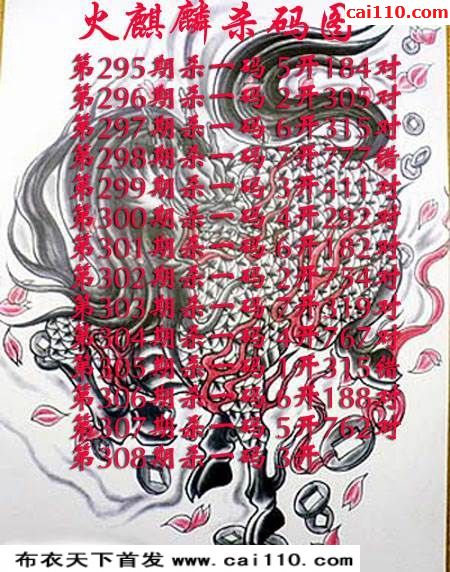 cai110.com
火麒麟杀码图
第295期杀一码5开184对
第296期杀一码2开305对
第297期杀一码6开315对
第298期杀一码7开777错
第299期杀一码3开411对
第300期杀一码4开292对
第301期杀一码6开182对
第302期杀一码2开754对
第303期杀一码7开319对
第304期杀一码4开767对
第305期杀一码1开315错
第306期杀一码6开188对
第307期杀一码5开762对
第308期杀一码3开
布衣天下首发 www.cai110.com